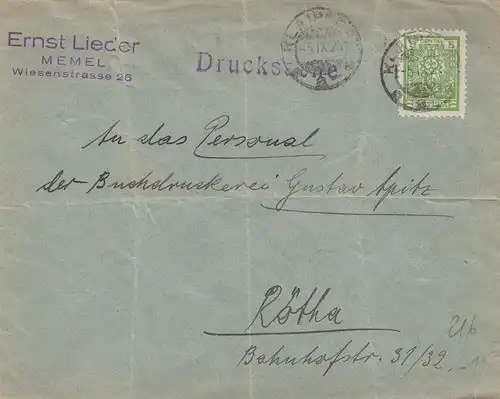 Ernst Lieder
MEMEL
Wiesenstrasse 26
Drucksache
KLAIPĖDA
An das Personal
der Buchdruckerei Gustav Spitz
Rötha
Bahnhofstr. 31/32.